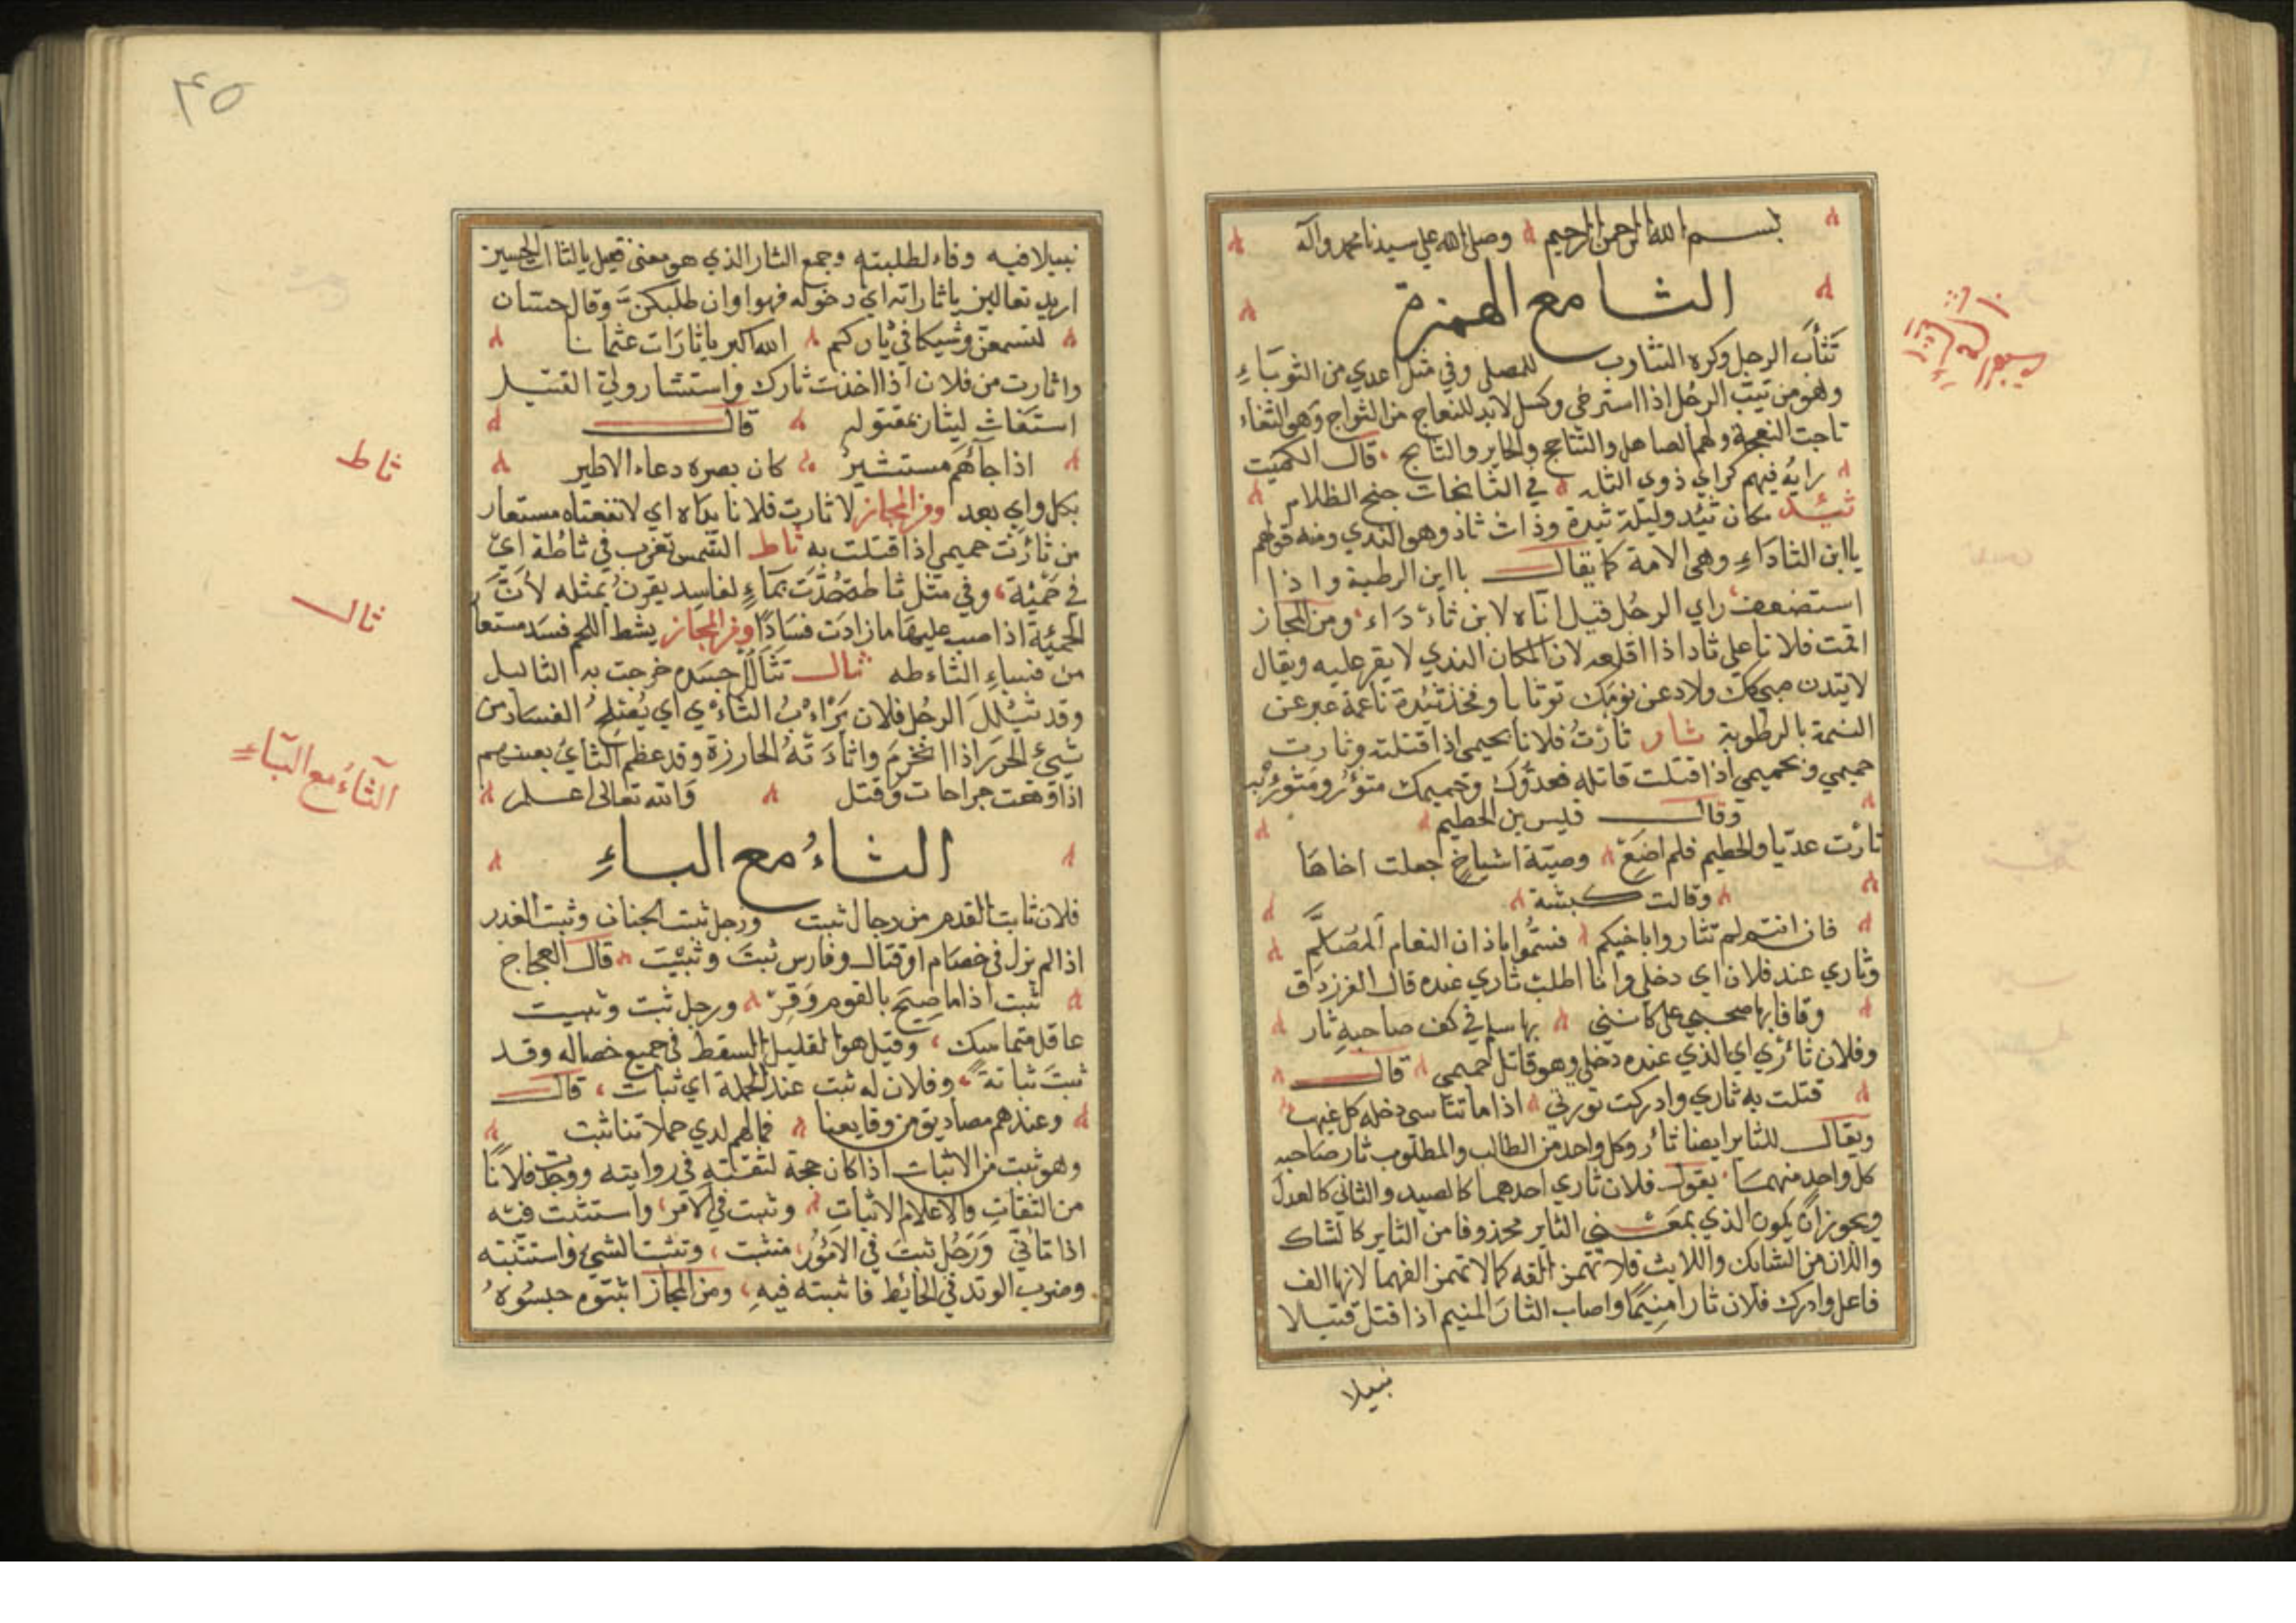 بسم الله الرحمن الرحيم وصلى الله على سيدنا محمد وآله
الثا مع الهمزة
تثأب الرجل وكره التثاوب للمصلي وفي مثل اعدي من الثوباء
وهو من ثيب الرجل اذا استرخي وكسل لابد للنعاج من الثواج وهو الثغاء
ثاجت النعجة ولهم الصاهل والثتاجج والخاير والثايج قال الكميت
رايه فيهم كراي ذوي الثله في الثايخات جنح الظلام
ثيد مكان ثئد وليلة ثيدة وذات ثاد وهو الندي ومنه قولهم
يا ابن الثاداء وهي الامة كما يقال يا ابن الرطبة واذا
استضعف راي الرجل قيل انه لابن ثاداء ومن المجاز
اقمت فلانا على ثاد اذا اقلعه لان المكان الندي لا يقر عليه ويقال
النعمة بالرطوبة ثار ثارت فلانا بحميمي اذا قتلته وثارت
حميمي وبحميمي اذا قتلت قاتله فعدوك وحميمك مثؤر ومثؤر به
وقال قيس بن الخطيم
ثارت عديا والخطيم فلم اضع وصية اشياخ جعلت اخاها
وقالت كبشة
فان انتم لم تثاروا باخيكم فمشوا باذان النعام المصلم
وثاري عند فلان اي دخلي وانا اطلب ثاري عنده قال الفرزدق
وقافا بها صحبي على كانني بها سلم في كف صاحبه ثار
وفلان ثائري اي الذي عنده دخلي وهو قاتل حميمي قال
قتلت به ثاري وادركت ثورتي اذا ما تناسى دخله كل غيهب
ويقال للثاير ايضا ثار وكل واحد من الطالب والمطلوب ثار صاحبه
كل واحد منهما يقول فلان ثاري احدهما كالصيد والثاني كالعدل
ويجوز ان يكون الذي بمعنى الثاير محذوفا من الثاير كالشاك
واللاث من الشايك واللايث فلا تهمز الفه كما لا تهمز الفهما لانها الف
فاعل وادرك فلان ثارا منيما واصاب الثار المنيم اذا قتل قتيلا
نبيلا
٤٥
نبيلا فيه وفاء لطلبته وجمع الثار الذي هو معنى قيل يا لثاات الحسين
اريد تعالين يا ثاراته اي دخوله فهوا وان طلبكن وقال حسان
لتسمعن وشيكا في دياركم الله اكبر يا ثارات عثمانا
واثارت من فلان اذا اخذت ثارك واستثار ولي القتيل
استغاث ليثار بمقتوله قال
اذا جاهم مستثير كان بصره دعاء الاطير
بكل واي بعد وفي المجاز لا ثارت فلانا يداه اي لا نفعتاه مستعار
من ثارت حميمي اذا قتلت به ثاط الشمس تغرب في ثاطة اي
في حمئة وفي مثل ثاطة مدت بماء لفاسد يقرن بمثله لان
الحمئة اذا صب عليها ما زادت فسادا وفي المجاز يثط اللحم فسد مستعار
من فساد الثاءطه ثال تثالل جسده خرجت به الثاليل
وقد ثئلل الرجل فلان يراب الثاي اي يصلح الفساد من
ثيئ الخرز اذا انخرم واثادته الخارزة وقد عظم الثاي بينهم
اذا وقعت جراحات وقتل والله تعالى اعلم
الثاء مع الباء
فلان ثابت القدم من رجال ثبت ورجل ثبت الجنان وثبت الغدر
اذا لم يزل في خصام او قتال وفارس ثبت وثبيت قال العجاج
ثبت اذا ما صيح بالقوم وقر ورجل ثبت وثبيت
عاقل متماسك وقيل هو القليل السقط في جميع خصاله وقد
ثبت ثباتة وفلان له ثبت عند الحملة اي ثبات قال
وعندهم مصاديق من وقايعنا فما لهم لدي حملاتنا ثبت
وهو ثبت من الاثبات اذا كان حجة لثقته في روايته ووجدت فلانا
من الثقات والاعلام الاثبات وثبت في الامر واستثبت فيه
اذا تاني ورجل ثبت في الامور متثبت وتثبت الشي واستثبته
وضرب الوتد في الحائط فاثبته فيه ومن المجاز اثبتوه حبسوه
ثاط
ثال
الثاء مع الباء